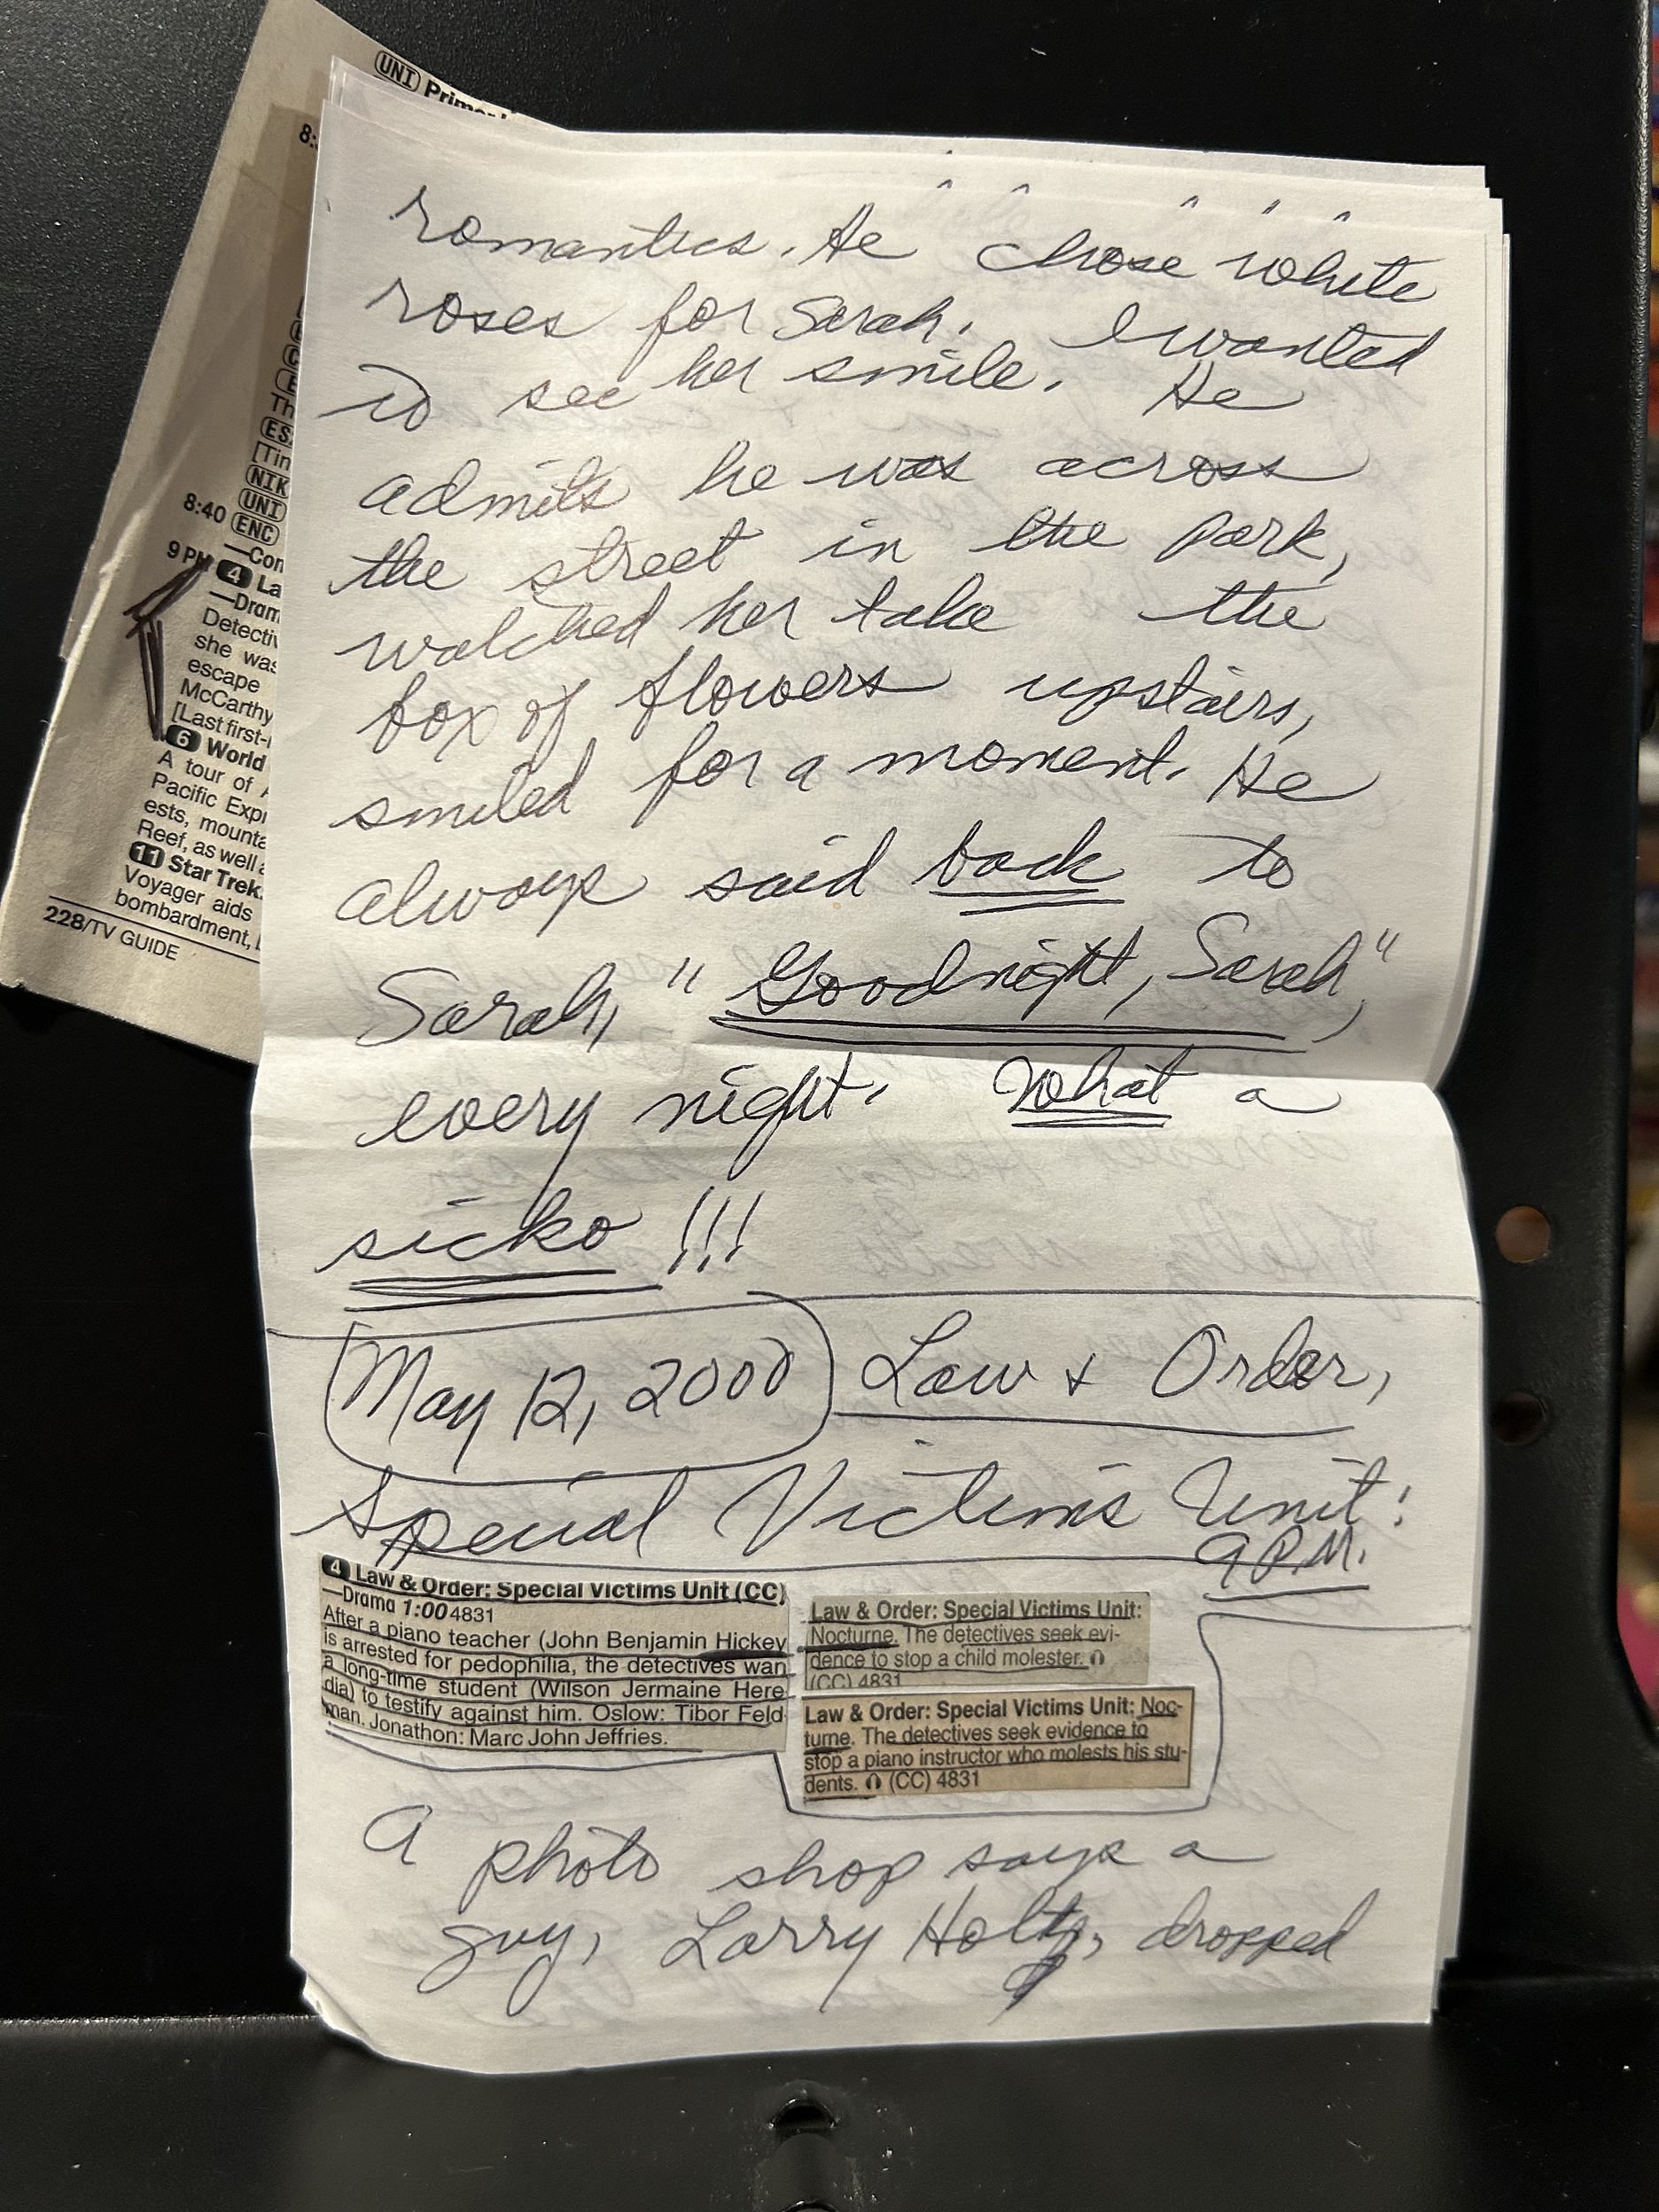 UNI
8:
ES
[Tin
NIK
UNI
8:40 ENC
—Con
9 PM 4 La
—Dram
Detectiv
she was
escape
McCarthy
[Last first-
6 World
A tour of
Pacific Expl
ests, mounta
Reef, as well
11 Star Trek
Voyager aids
bombardment,
228/TV GUIDE
romantics. He chose white
roses for Sarah. I wanted
to see her smile. He
admits he was across
the street in the park,
watched her take the
box of flowers upstairs,
smiled for a moment. He
always said back to
Sarah, "Goodnight, Sarah,"
every night. What a
sicko!!!
May 12, 2000 Law & Order,
Special Victims Unit:
9 P.M.
4 Law & Order: Special Victims Unit (CC)
—Drama 1:00 4831
After a piano teacher (John Benjamin Hickey
is arrested for pedophilia, the detectives wan
a long-time student (Wilson Jermaine Here
dia) to testify against him. Oslow: Tibor Feld
man. Jonathon: Marc John Jeffries.
Law & Order: Special Victims Unit:
Nocturne. The detectives seek evi-
dence to stop a child molester.
(CC) 4831
Law & Order: Special Victims Unit: Noc-
turne. The detectives seek evidence to
stop a piano instructor who molests his stu-
dents. (CC) 4831
A photo shop says a
guy, Larry Holtz, dropped